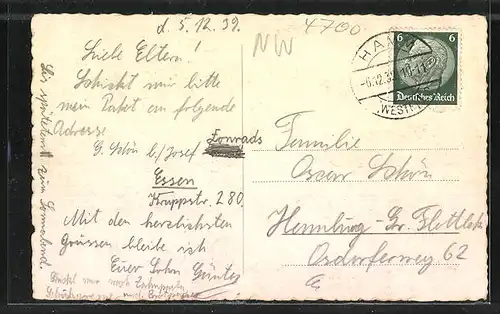 d. 5.12.39.
4700
NW
Liebe Eltern!
Schickt mir bitte
mein Paket an folgende
Adresse
G. Schön b/Josef Konrads
Essen
Kruppstr. 280.
Mit den herzlichsten
Grüssen bleibe ich
Euer Sohn Günter
Schickt mir noch
bis spätestens zum Sonnabend.
6 6
Deutsches Reich
HAMM
-6.12.39
(WESTF)
Familie
Oscar Schön
Hamburg-Gr. Flottbek
Osdorferweg 62